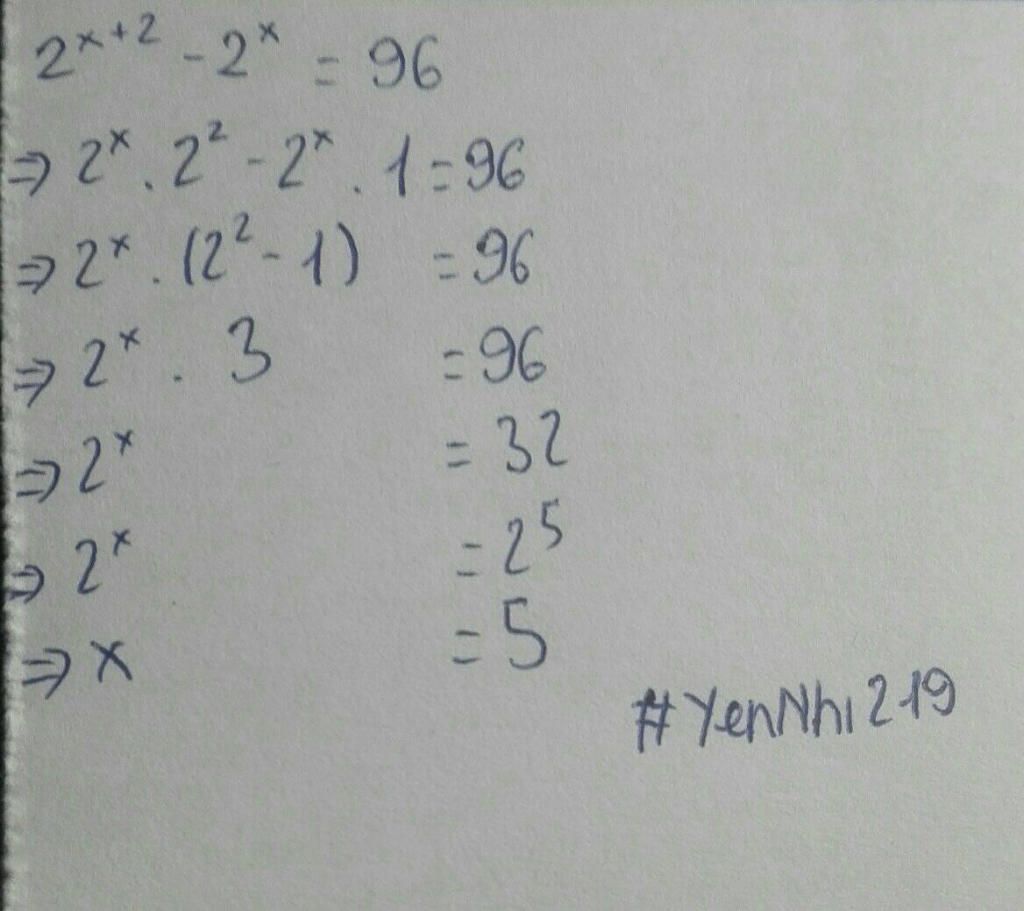 2^{x+2} - 2^x = 96
⇒ 2^x . 2^2 - 2^x . 1 = 96
⇒ 2^x . (2^2 - 1) = 96
⇒ 2^x . 3 = 96
⇒ 2^x = 32
⇒ 2^x = 2^5
⇒ x = 5
#YenNhi219